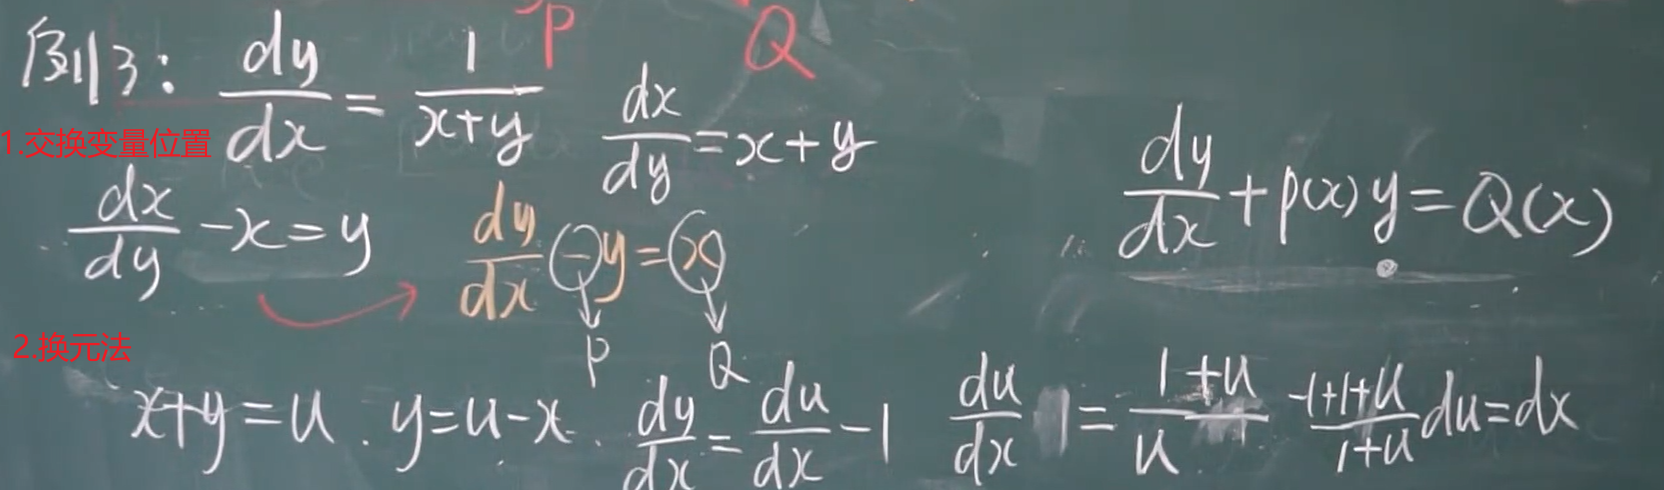 P Q
例3: dy/dx = 1/(x+y) dx/dy = x+y
1.交换变量位置
dx/dy - x = y dy/dx - y = x dy/dx + p(x) y = Q(x)
P Q
2.换元法
x+y=u . y=u-x . dy/dx = du/dx - 1 du/dx = (1+u)/u (-1+1+u)/(1+u) du = dx